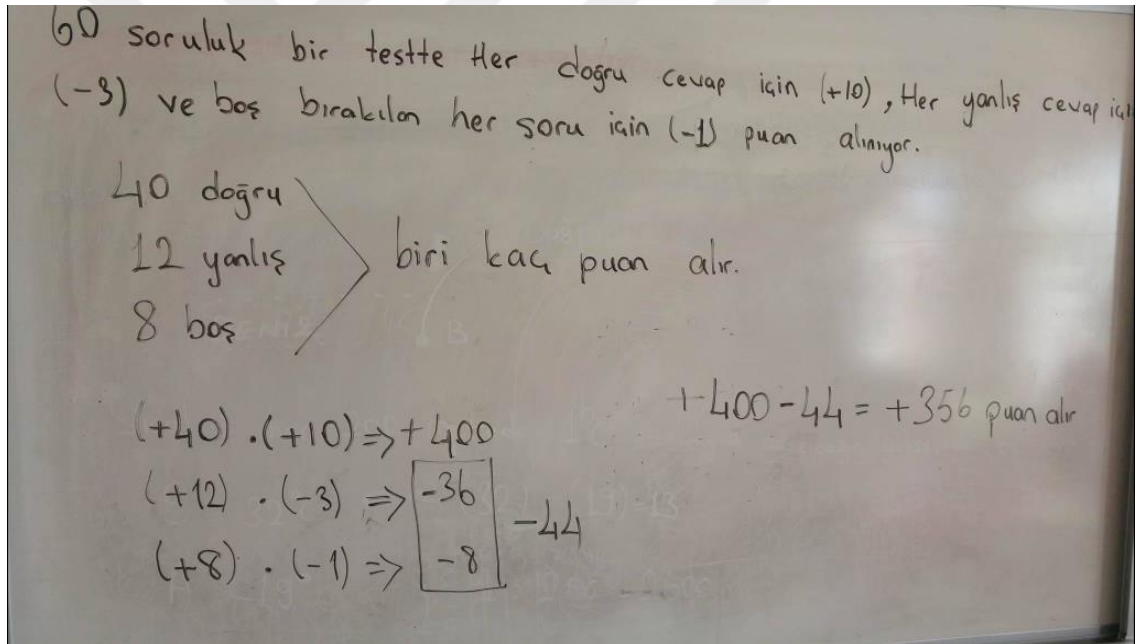 60 soruluk bir testte Her doğru cevap için (+10), Her yanlış cevap için
(-3) ve boş bırakılan her soru için (-1) puan alınıyor.
40 doğru
12 yanlış
8 boş
biri kaç puan alır.
(+40) . (+10) => +400
(+12) . (-3) => -36
(+8) . (-1) => -8
-44
+400-44 = +356 puan alır